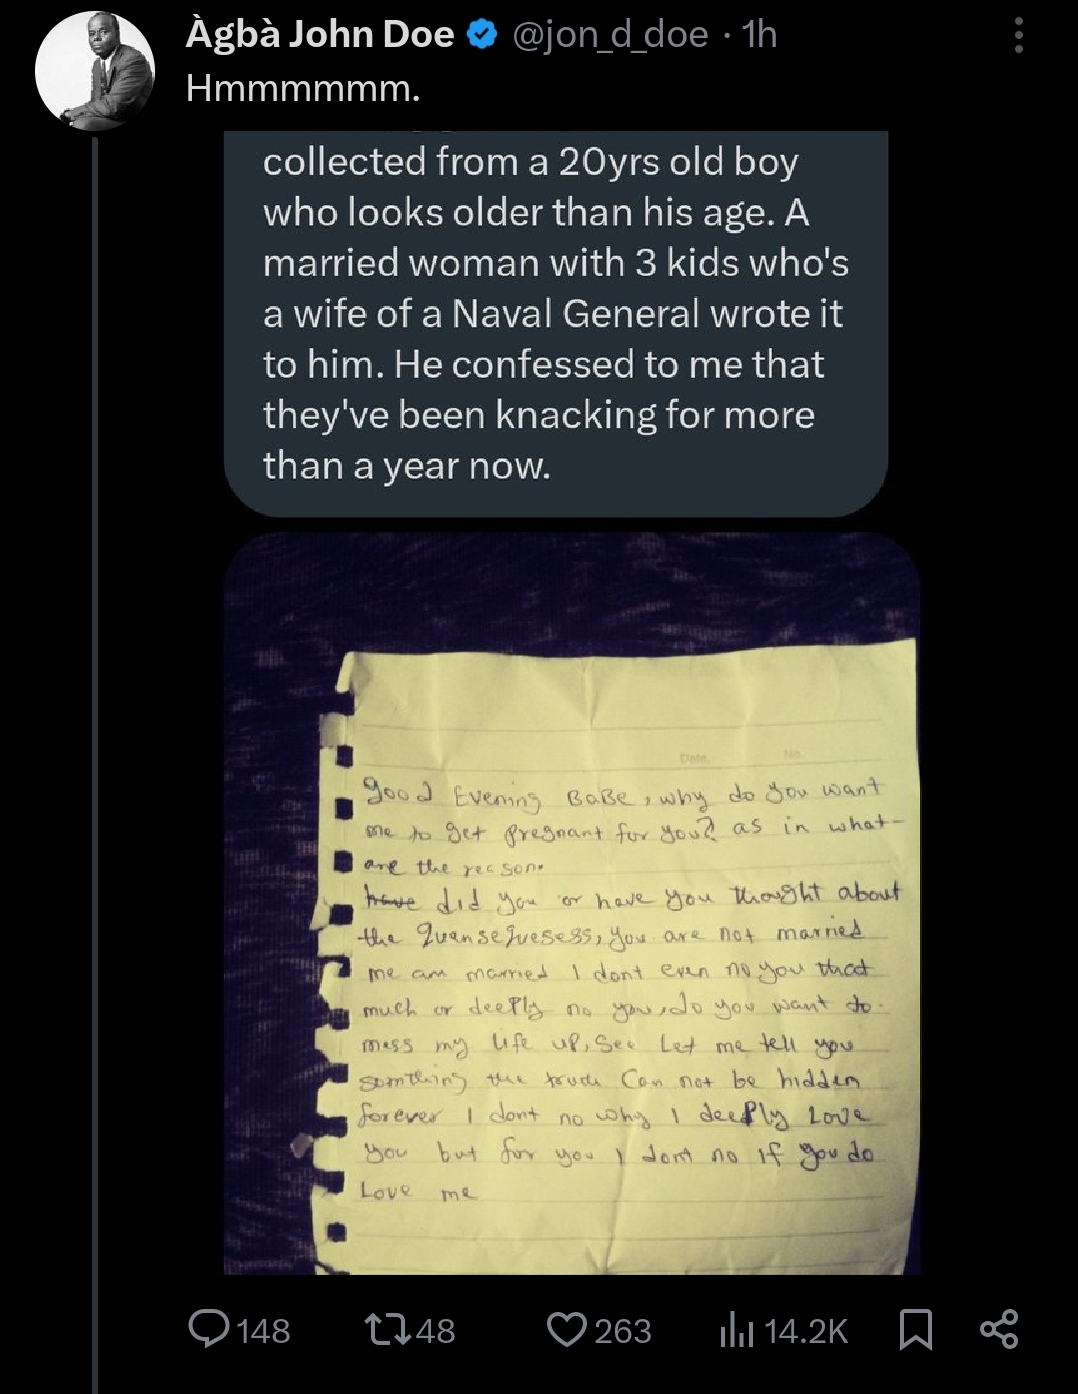 Àgbà John Doe @jon_d_doe · 1h
Hmmmmmm.
collected from a 20yrs old boy
who looks older than his age. A
married woman with 3 kids who's
a wife of a Naval General wrote it
to him. He confessed to me that
they've been knacking for more
than a year now.
Date. No.
good Evening BaBe, why do you want
me to get pregnant for you? as in what
are the reason.
have did you or have you thought about
the quensequesess, you are not married
me am married I dont even no you that
much or deeply no you, do you want to.
mess my life up, See Let me tell you
somthing the truth Can not be hidden
forever I dont no why I deeply Love
you but for you I dont no if you do
Love me
148 48 263 14.2K